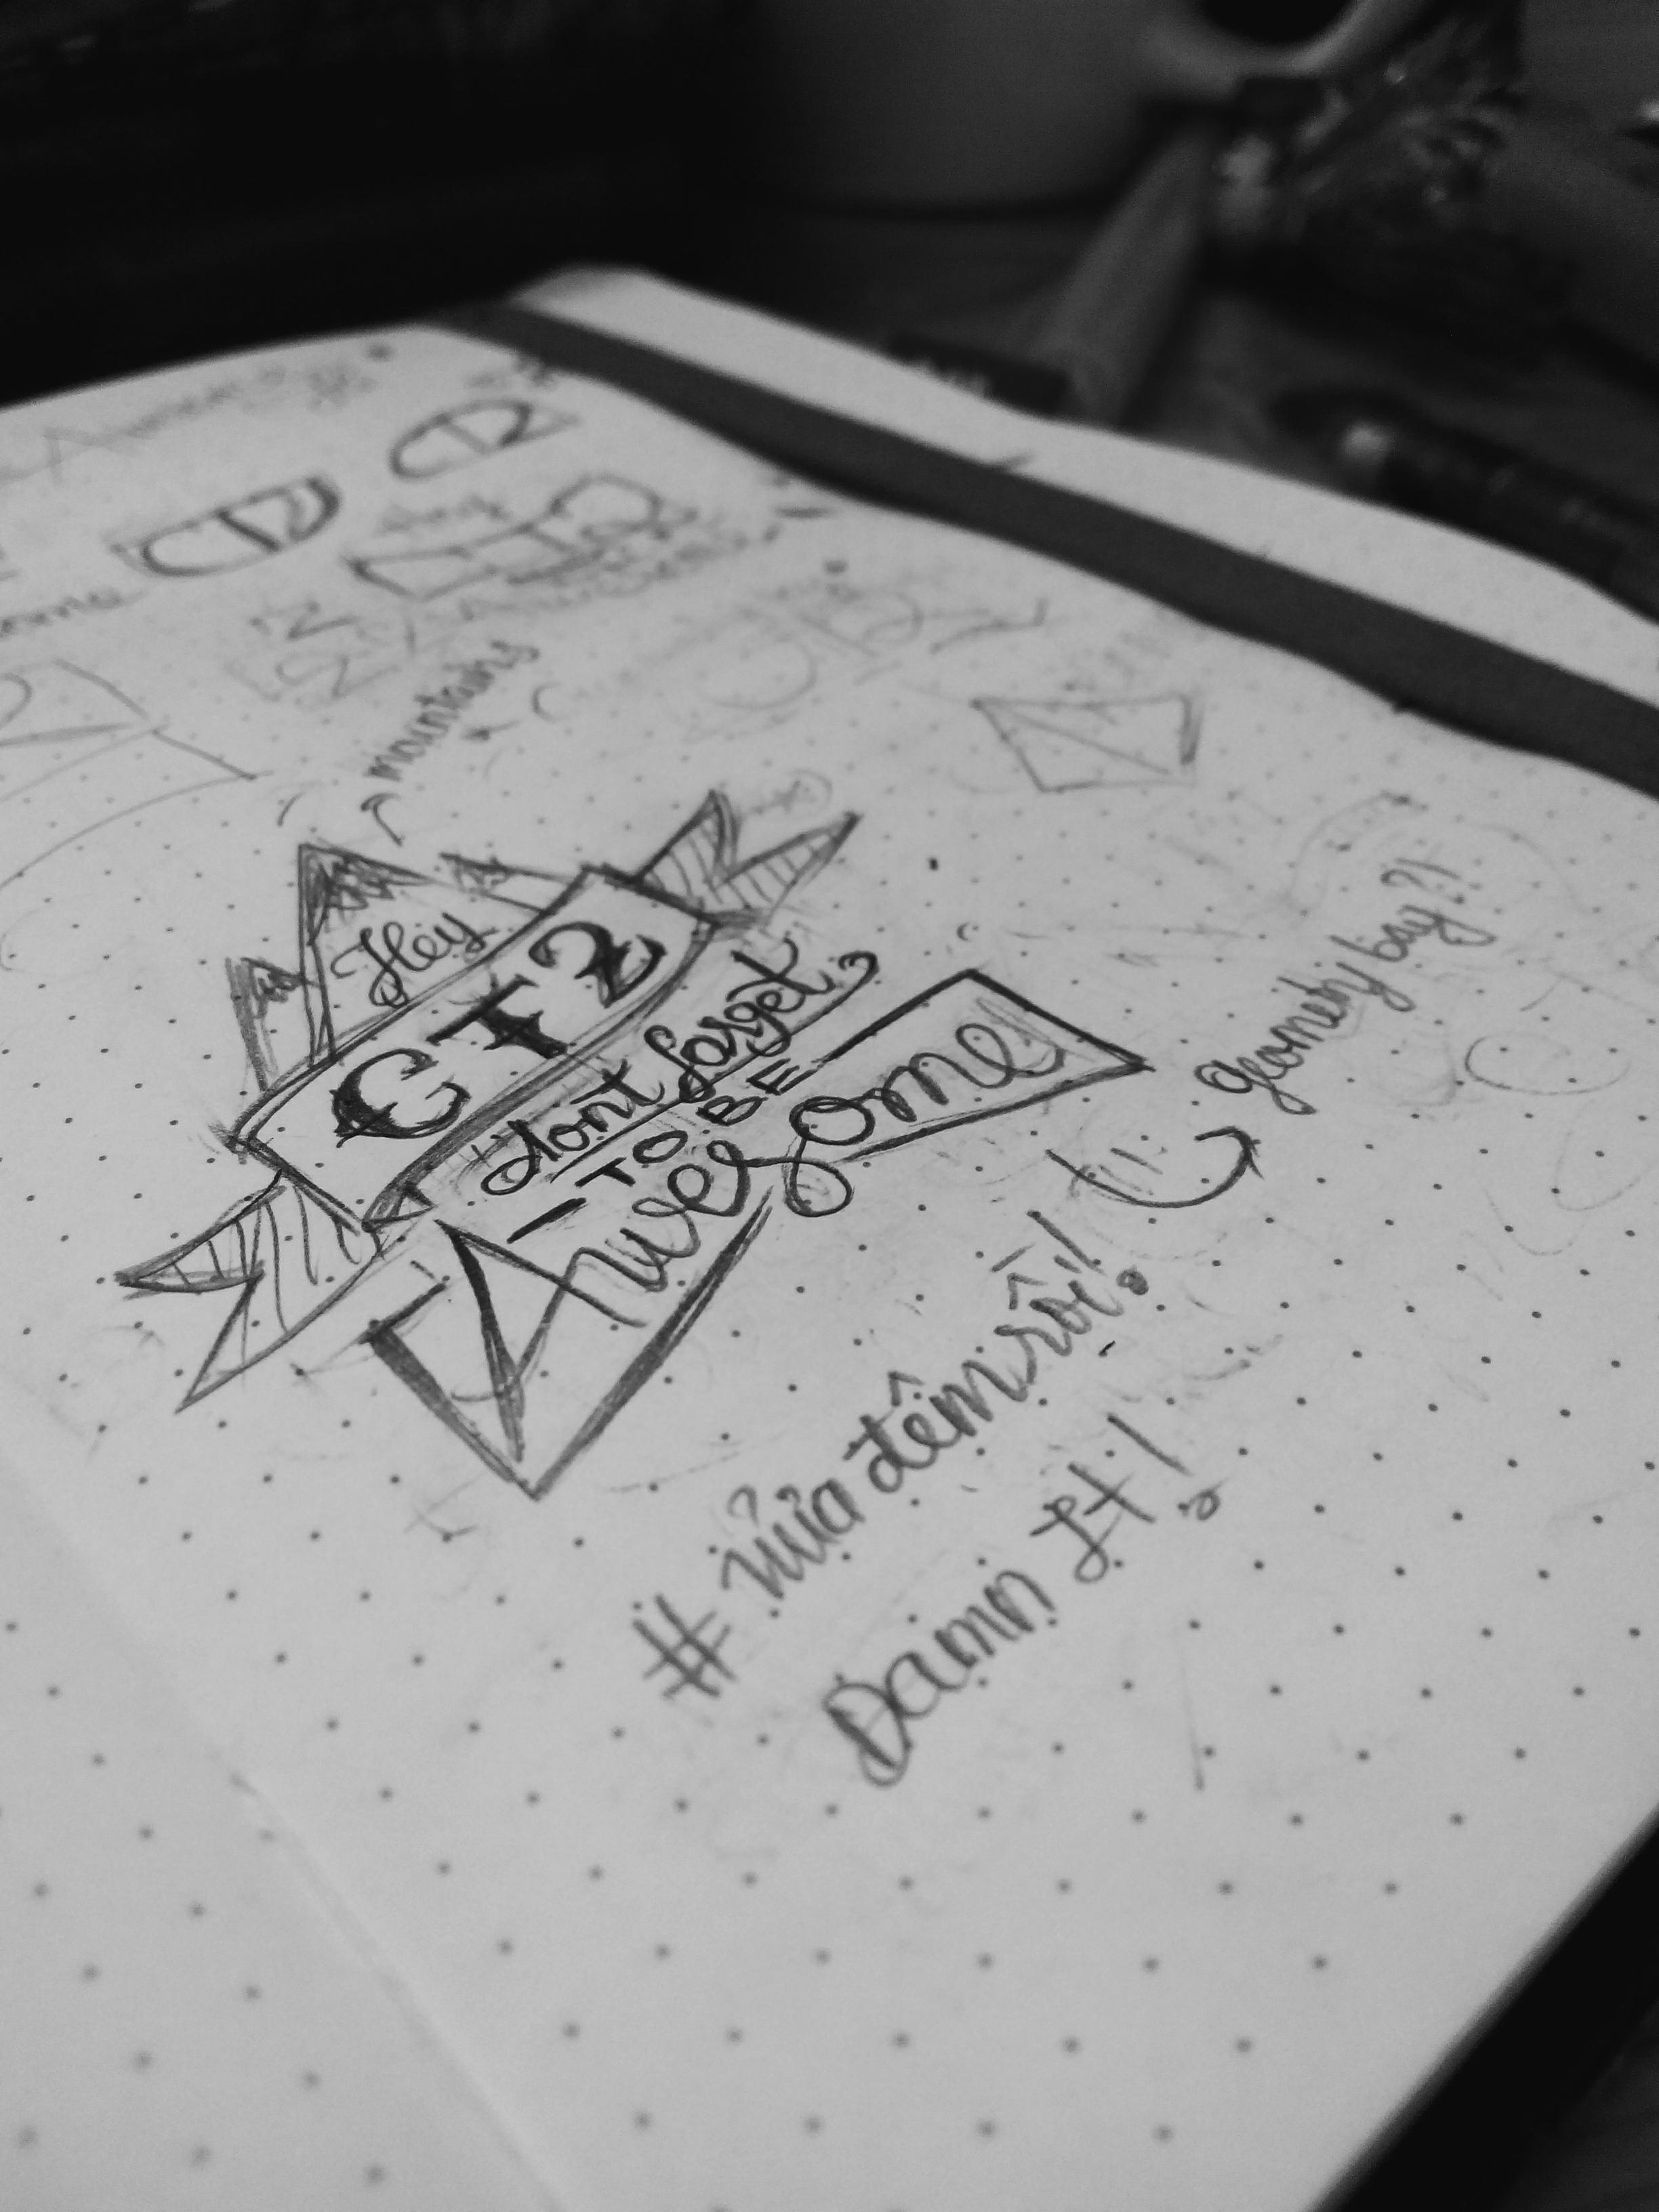 CT2
CT2
mountains
Hey
CT2
don't forget
TO BE
Awesome
geometry bay?!
# nửa đêm rồi!
Damn It!